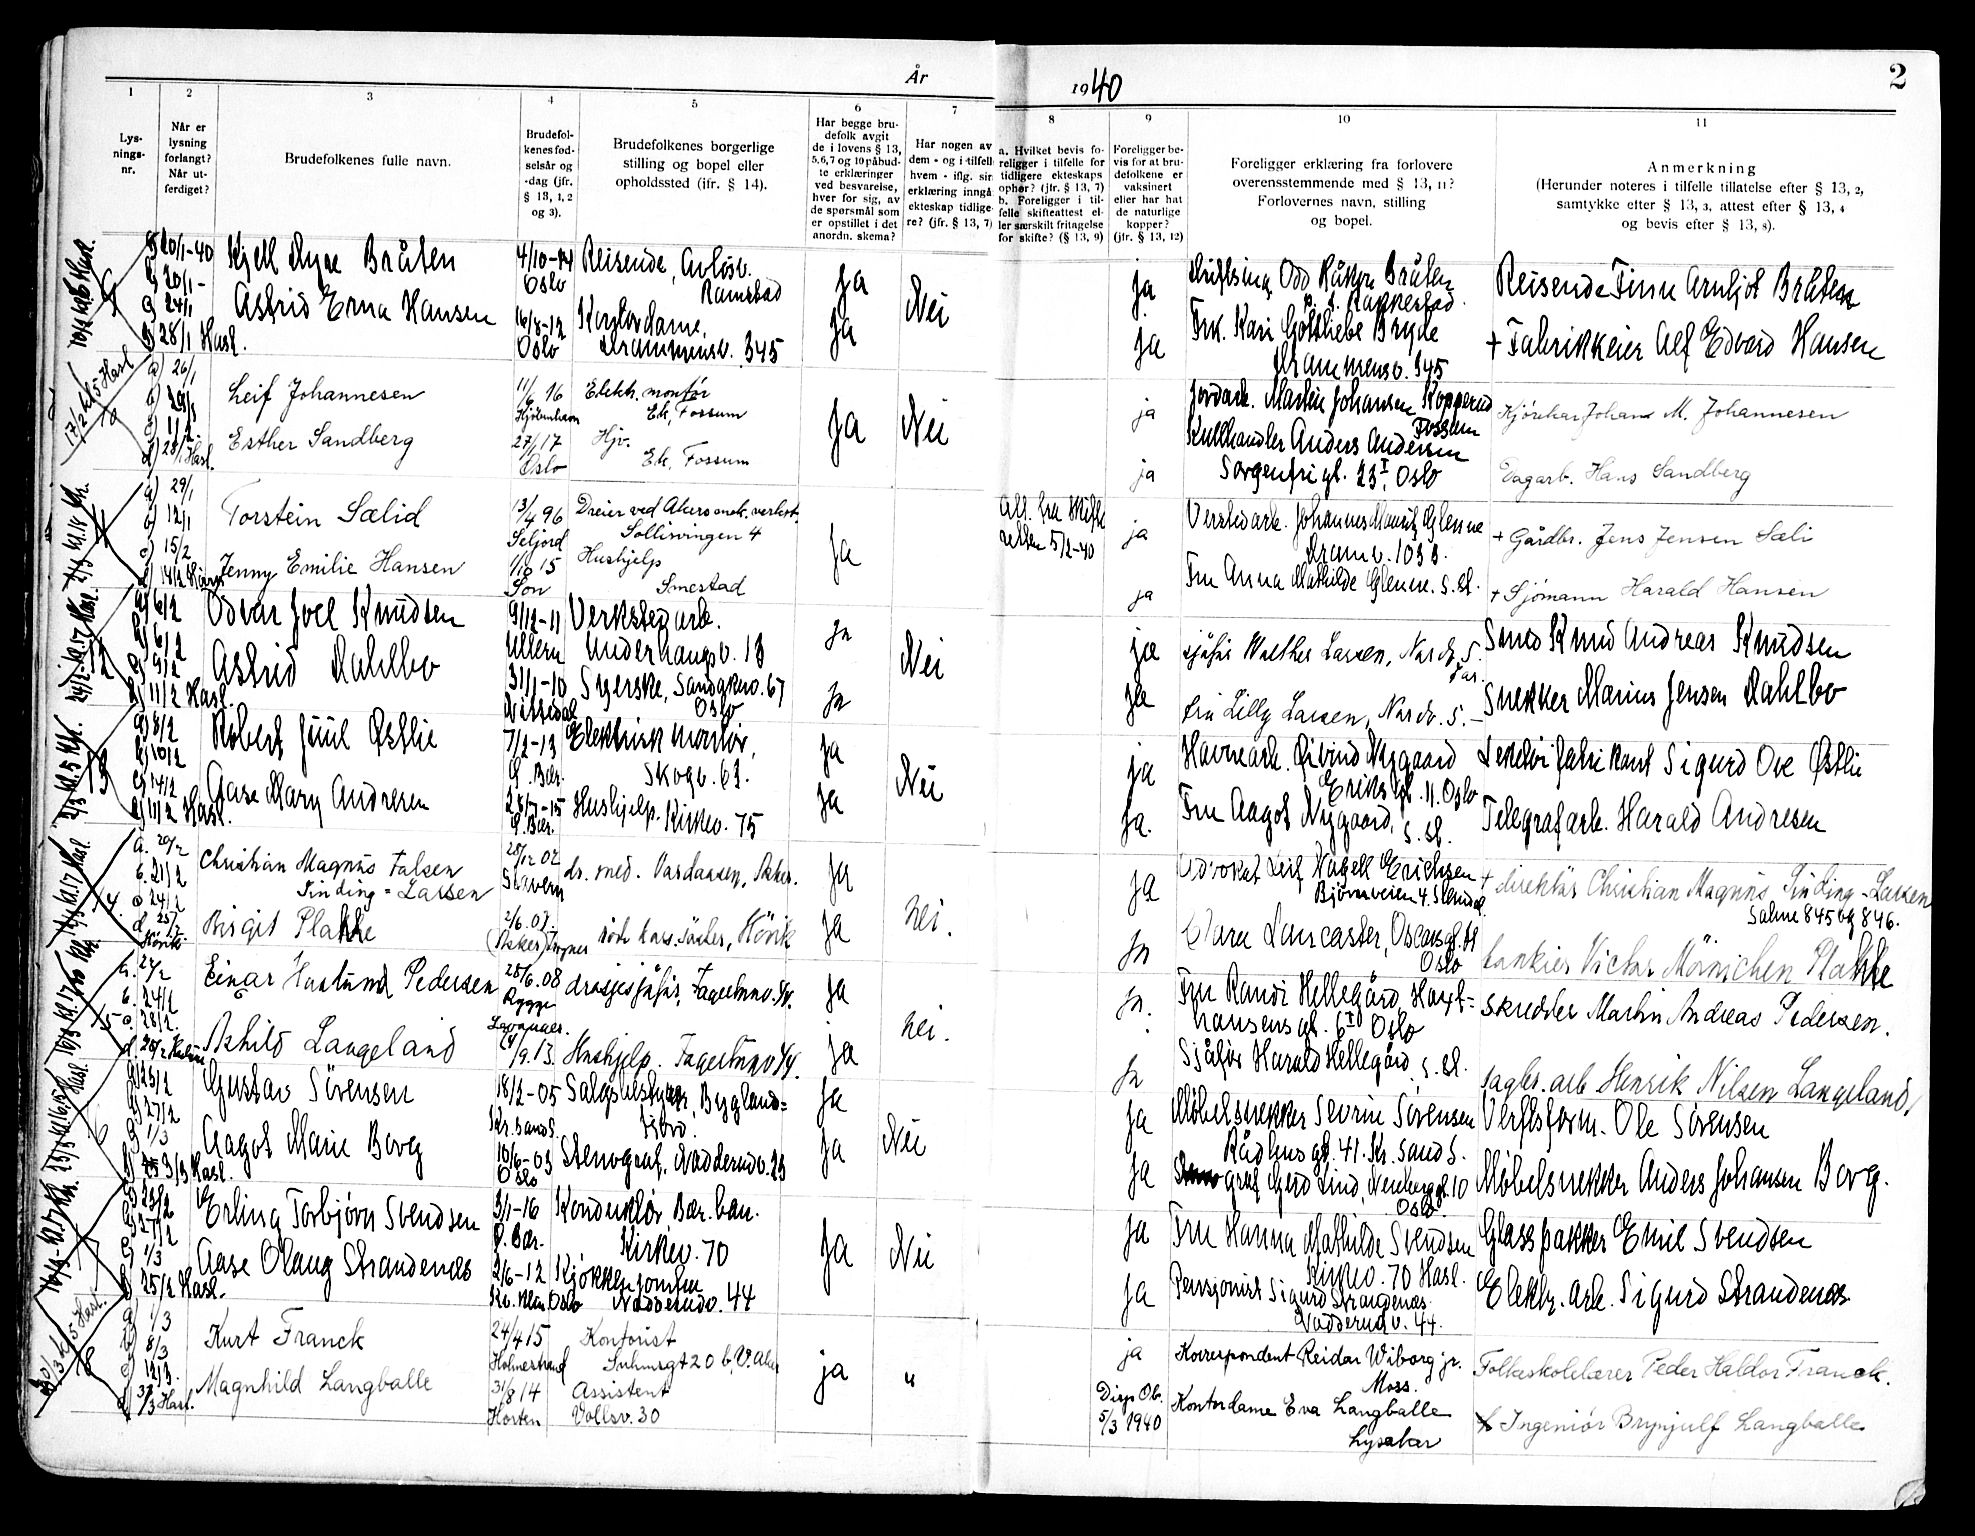 År 1940
2
1 2 3 4 5 6 7 8 9 10 11
Lys-
nings-
nr.
Når er
lysning
forlangt?
Når ut-
ferdiget?
Brudefolkenes fulle navn.
Brudefol-
kenes fød-
selsår og
-dag (jfr.
§ 13, 1, 2
og 3).
Brudefolkenes borgerlige
stilling og bopel eller
opholdssted (jfr. § 14).
Har begge bru-
defolk avgit
de i lovens § 13,
5, 6, 7 og 10 påbud-
te erklæringer
ved besvarelse,
hver for sig, av
de spørsmål som
er opstillet i det
anordn. skema?
Har nogen av
dem - og i tilfelle
hvem - iflg. sin
erklæring inngå
ekteskap tidlige-
re? (jfr. § 13, 7)
a. Hvilket bevis fo-
religger i tilfelle for
tidligere ekteskaps
ophør? (jfr. § 13, 7)
b. Foreligger i til-
felle skifteattest el-
ler særskilt fritagelse
for skifte? (§ 13, 9)
Foreligger be-
vis for at bru-
defolkene er
vaksinert
eller har hat
de naturlige
kopper?
(jfr. § 13, 12)
Foreligger erklæring fra forlovere
overensstemmende med § 13, 11?
Forlovernes navn, stilling
og bopel.
Anmerkning
(Herunder noteres i tilfelle tillatelse efter § 13, 2,
samtykke efter § 13, 3, attest efter § 13, 4
og bevis efter § 13, 8).
20/1-40
20/1-
24/1
28/1 Hasl.
Kjell Bråten
Astrid Erna Hansen
4/10-14
Oslo
16/8-12
Oslo
Reisende, Avløsv.
Ramstad
Kontordame,
Drammensv. 345
Ja
Ja
Nei
ja
ja
Bråten
Frk. Kari Gottliebe Bryne
Drammensv. 345
Reisende Finn Arnljot Bråten
+ Fabrikkeier Alf Edvard Hansen
a) 26/1
b) 29/1
c) 1/2
d) 28/1 Hasl.
Leif Johannesen
Esther Sandberg
11/6 16
Kjøbenhavn
27/1 17
Oslo
Elektr. montør
Ek, Fossum
Hjv.
Ek, Fossum
Ja
Nei
ja
ja
Jordarb. Martin Johansen Kopperud
Fossum
Kullhandler Anders Andersen
Sorgenfrigt. 23 I, Oslo
Kjørekar Johans M. Johannesen
Dagarb. Hans Sandberg
a) 29/1
b) 12/1
c) 15/2
Torstein Sælid
Jenny Emilie Hansen
13/4 96
Seljord
1/10 15
Son
Dreier ved Akers mek. verkst.
Sollisvingen 4
Hushjelp
Smestad
Ja
Att. fra Skifte
retten 5/2-40
ja
ja
Verkstedarb. Johannes Glenne
Dramv. 103 B.
Fru Anna Mathilde Glenne. s. st.
+ Gårdbr. Jens Jensen Sæli
+ Sjømann Harald Hansen
a) 6/2
b) 6/2
c) 9/2
d) 11/2 Hasl.
Odvar Joel Knudsen
Astrid Dahlbo
9/12-11
Ullern
31/1-10
Nittedal
Verkstedarb.
Underhaugsv. 13
Syerske, Sandakerv. 67
Oslo
Ja
Ja
Nei
ja
ja
sjåfør Walther Larsen,
Fru Lilly Larsen,
Smed Knud Andreas Knudsen
Snekker Marius Jensen Dahlbo
a) 8/2
b) 10/2
c) 14/2
d) 11/2 Hasl.
Robert Juul Østlie
Aase Mary Andresen
7/2-13
Ø. Bær.
Ø. Bær.
Elektrisk montør,
Skogv. 63.
Hushjelp. Kirkev. 75
Ja
Ja
Nei
ja
ja.
Havnearb. Øivind Nygaard
Eriks gt. 11. Oslo
Fru Aagot Nygaard, s. st.
Lekətøifabrikant Sigurd Ove Østlie
Telegrafarb. Harald Andresen
a. 20/2
b. 21/2
c 24/2
Christian Magnus Falsen
Sinding-Larsen
Birgit Plahte
28/12 02
Stavern
2/6. 07.
(Asker)
dr. med. Vardaasen, Asker.
røde kors. søster, Hönik
Ja
Ja
Nei.
Ja
Ja
Advokat Leif Nagell Erichsen
Bjørnveien 4. Slemdal
Clara Lancaster, Oscarsgt.
Oslo
+ direktør Christian Magnus Sinding-Larsen
Salme 845 og 846.
bankier Victor Mönichen Plahte
Einar Haslund Pedersen
Askild Langeland
28/6. 08
Rygge
/9. 13.
drosjesjåfør, Fagertunv.
Hushjelp. Fagertunv
Ja
Ja
Nei.
Ja.
Ja
Fru Randi Hellegård,
hansens gt. 6 I Oslo
Sjåfør Harald Hellegård, s. st.
skredder Martin Andreas Pedersen.
fagbr. arb Henrik Nilsen Langeland,
a) 25/2
b) 27/2
c) 1/3
3/3 Hasl.
Gustav Sørensen
Aagot Marie Borg
18/2-05
Kr. sand S.
10/6-03
Oslo
Salgsbestyrer, Bygland-
fjord.
Stenograf. Nadderudv. 23
Ja
Ja
Nei
Ja
Ja
Møbelsnekker Severin Sørensen
Rådhusgt. 41. Kr. sand S.
Gerd Lind, 10
Oslo.
Verftsform. Ole Sørensen
Møbelsnekker Anders Johansen Borg.
a) 23/2
b) 27/2
c) 1/3
d) 25/2 Hasl.
Erling Torbjørn Svendsen
Aase Olaug Strandenæs
3/1-16
Ø. Bær.
2/6-12
Oslo
Konduktør, Bær. ban.
Kirkev. 70
Kjøkkenjomfru
Nadderudv. 44
Ja
Nei
Ja
Ja
Fru Hanna Mathilde Svendsen
Kirkev. 70 Hasl.
Pensjonist Sigurd Strandenæs
Nadderudv. 44.
Glasspakker Emil Svendsen
Elektr. arb. Sigurd Strandenæs
a) 1/3
b) 8/3
c) 12/3.
d) 3/3 Hasl.
Kurt Franck
Magnhild Langballe
24/4 15
Holmestrand
31/8 14
Horten
Kontorist
Suhmsgt 20 b, V. Aker
Assistent
Vollsv. 30
ja
"
ja
Disp Ob.
5/3 1940
Korrespondent Reidar Wiborg jr.
Moss.
Kontordame Eva Langballe
Lysaker
Folkeskolelærer Peder Haldor Franck.
Ingeniør Brynjulf Langballe